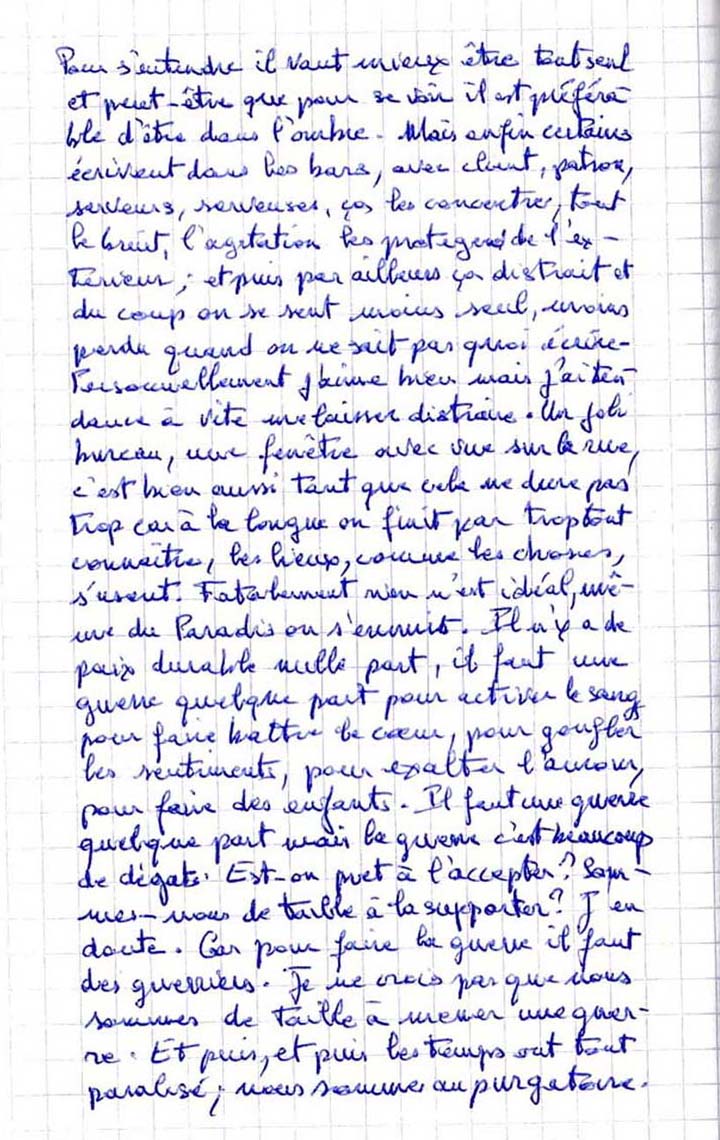 Pour s'entendre il vaut mieux être tout seul
et peut-être que pour se voir il est préféra
ble d'être dans l'ombre. Mais enfin certains
écrivent dans les bars, avec client, patron,
serveurs, serveuses, ça les concentre, tout
le bruit, l'agitation les protegent de l'ex-
terieur; et puis par ailleurs ça distrait et
du coup on se sent moins seul, moins
perdu quand on ne sait pas quoi écrire.
Personnellement j'aime bien mais j'ai ten
dance à vite me laisser distraire. Un joli
bureau, une fenêtre avec vue sur la rue,
c'est bien aussi tant que cela ne dure pas
trop car à la longue on finit par trop tout
connaître, les lieux, comme les choses,
s'usent. Fatalement rien n'est idéal, mê-
me du Paradis on s'ennuit. Il n'y a de
paix durable nulle part, il faut une
guerre quelque part pour activer le sang
pour faire battre le cœur, pour gonfler
les sentiments, pour exalter l'amour,
pour faire des enfants. Il faut une guerre
quelque part mais la guerre c'est beaucoup
de dégats. Est-on pret à l'accepter? Som-
mes-nous de taille à la supporter? J'en
doute. Car pour faire la guerre il faut
des guerriers. Je ne crois pas que nous
sommes de taille à mener une guer-
re. Et puis, et puis les temps ont tout
paralisé; nous sommes au purgatoire.